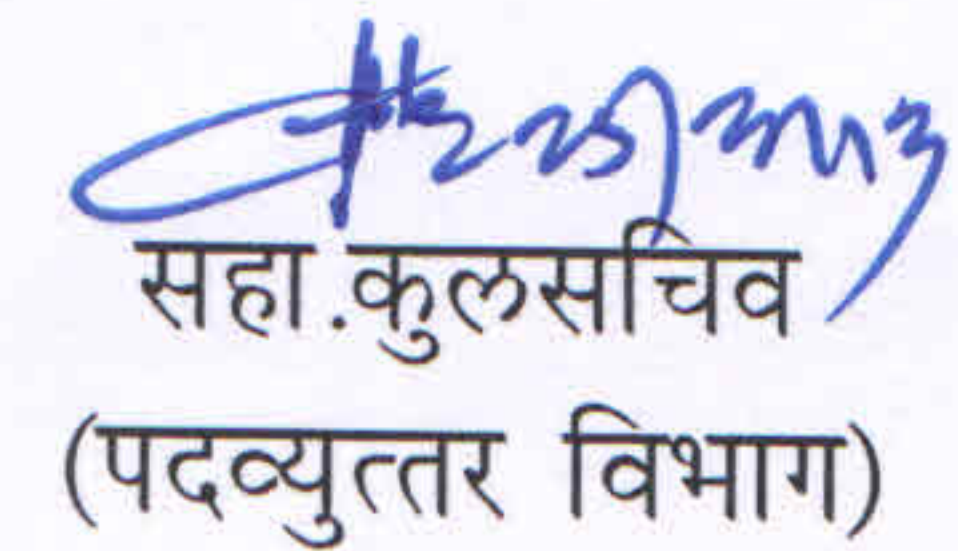 सहा.कुलसचिव
(पदव्युत्तर विभाग)